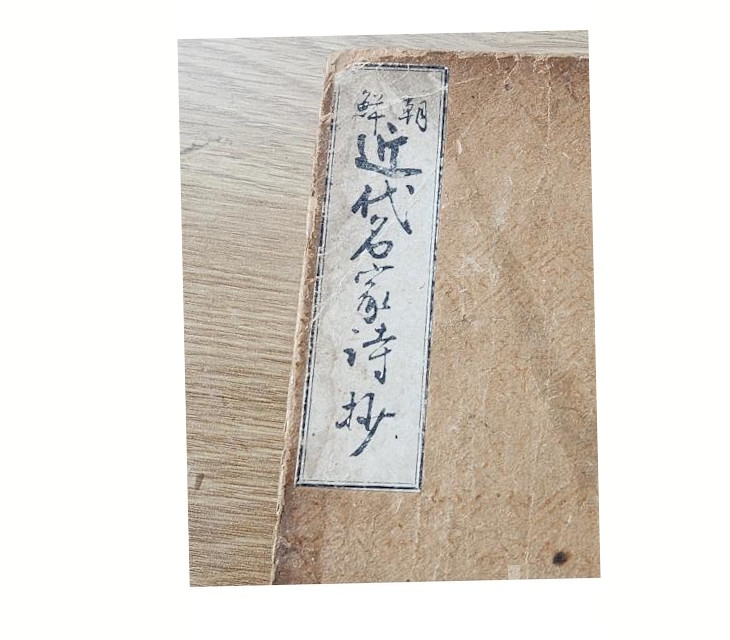 朝鮮
近代名家詩抄